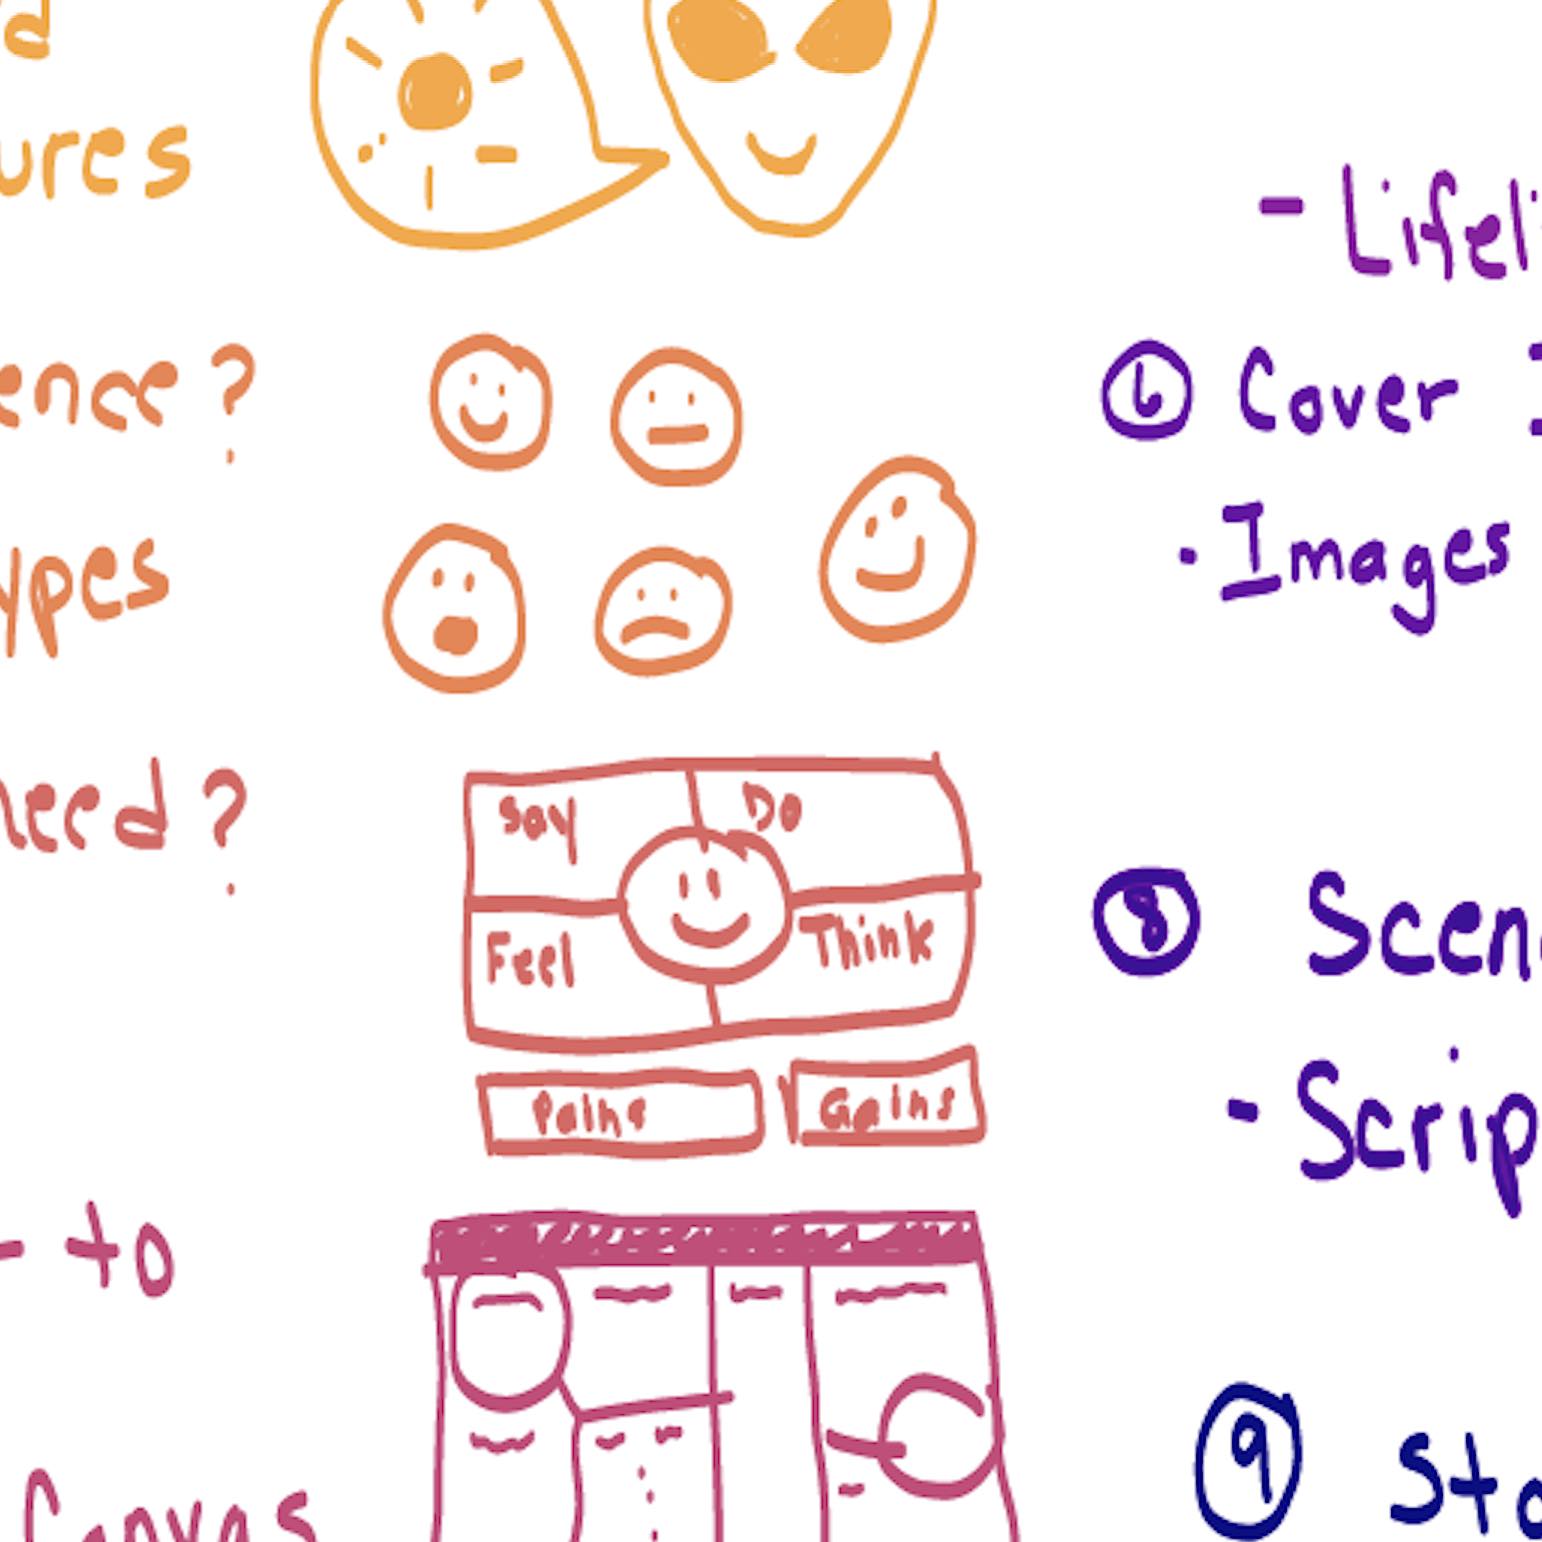 d
ures
ence?
ypes
need?
Say
Do
Feel
Think
Pains
Gains
- to
Canvas
- Lifeli
6 Cover I
· Images
8 Scen
- Scrip
9 Sto